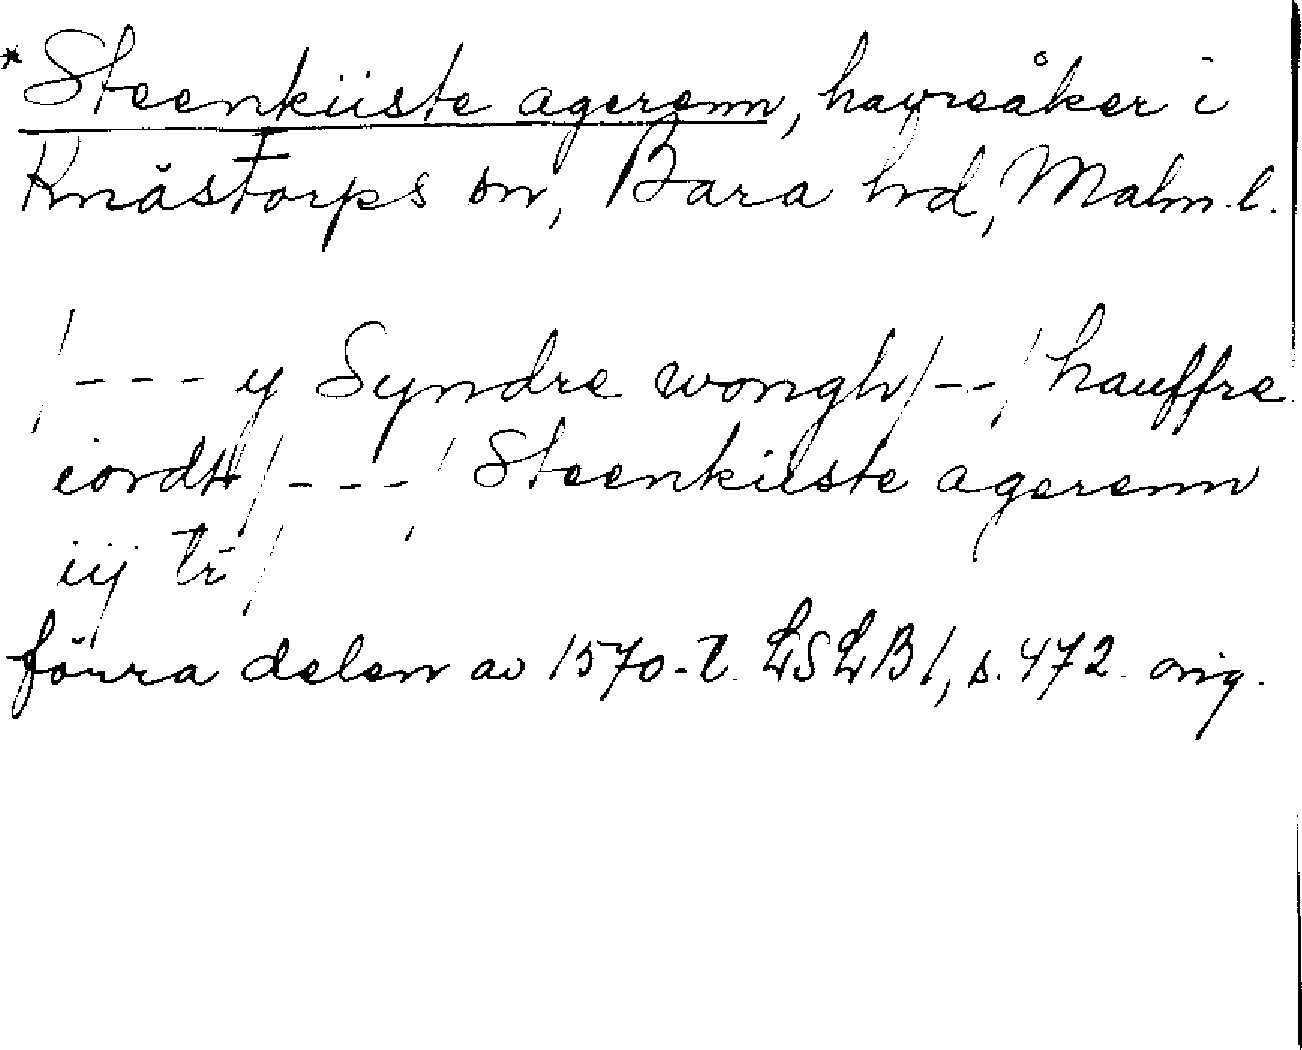 * Steenküste agerenn, havreåker i
Knästorps sn, Bara hd, Malm.l.
/--- y Syndre wongh/--/ hauffre
iordt/---/ Steenküste agerenn
iij tr/
förra delen av 1570-t. LSLB 1, s. 472 orig.